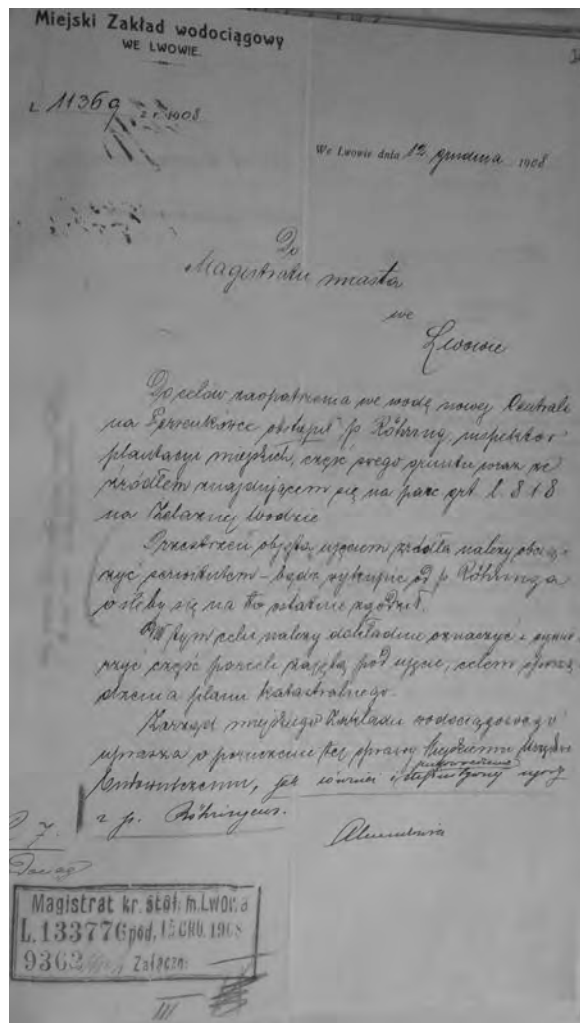 Miejski Zakład wodociągowy
WE LWOWIE.
L 11369 z r. 1908
We Lwowie dnia 12 grudnia 1908
Do
Magistratu miasta
we
Lwowie
Do celów zaopatrzenia we wodę nowej Centrali
na Persenkówce odstąpił p. Röhring, inspektor
plantacyi miejskich, część swego gruntu wraz ze
źródłem znajdującem się na parc. grt. l. 818
na Żelaznej Wodzie
Przestrzeń objętą ujęciem źródła należy obcią-
żyć serwitutem – bądź wykupić od p. Röhringa
o ileby się na to ostatnie zgodził.
W tym celu należy dokładnie oznaczyć i
rzyć część parceli zajętą pod ujęcie, celem sporzą
dzenia planu katastralnego.
Zarząd miejskiego Zakładu wodociągowego
uprasza o poruczenie tej sprawy Urzędowi
budowniczemu, jak również
z p. Röhringiem.
Magistrat kr. stół. m. Lwowa
L. 133776 pod. 15 GRU. 1908
9362 Załącz:
III